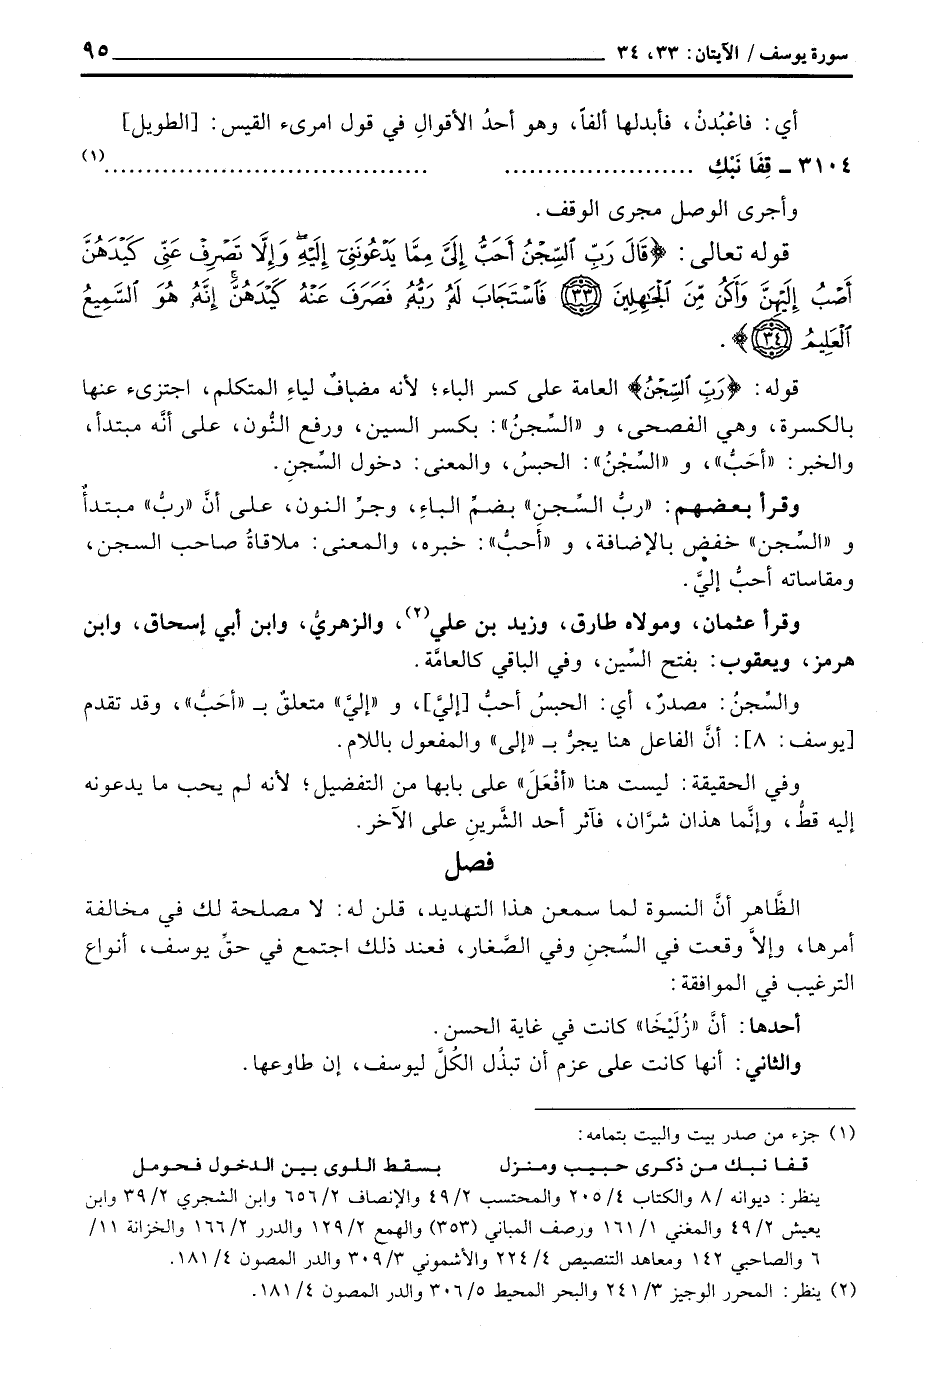 سورة يوسف / الآيتان: ٣٣، ٣٤ ٩٥
أي: فاعْبُدنْ، فأبدلها ألفاً، وهو أحدُ الأقوالِ في قول امرىء القيس: [الطويل]
٣١٠٤ ـ قِفَا نَبْكِ ....................... .......................................(١)
وأجرى الوصل مجرى الوقف.
قوله تعالى: ﴿قَالَ رَبِّ ٱلسِّجْنُ أَحَبُّ إِلَىَّ مِمَّا يَدْعُونَنِىٓ إِلَيْهِۖ وَإِلَّا تَصْرِفْ عَنِّى كَيْدَهُنَّ
أَصْبُ إِلَيْهِنَّ وَأَكُن مِّنَ ٱلْجَٰهِلِينَ ﴿٣٣﴾ فَٱسْتَجَابَ لَهُۥ رَبُّهُۥ فَصَرَفَ عَنْهُ كَيْدَهُنَّۚ إِنَّهُۥ هُوَ ٱلسَّمِيعُ
ٱلْعَلِيمُ ﴿٣٤﴾﴾.
قوله: ﴿رَبِّ ٱلسِّجْنُ﴾ العامة على كسر الباء؛ لأنه مضافٌ لياءِ المتكلم، اجتزىء عنها
بالكسرة، وهي الفصحى، و «السِّجنُ»: بكسر السين، ورفع النُّون، على أنَّه مبتدأ،
والخبر: «أحَبُّ»، و «السِّجْنُ»: الحبسُ، والمعنى: دخول السِّجنِ.
وقرأ بعضهم: «ربُّ السِّجنِ» بضمِّ الباءِ، وجرِّ النون، على أنَّ «ربُّ» مبتدأٌ
و «السِّجن» خفض بالإضافة، و «أحبُّ»: خبره، والمعنى: ملاقاةُ صاحب السجن،
ومقاساته أحبُّ إليَّ.
وقرأ عثمان، ومولاه طارق، وزيد بن علي(٢)، والزهريُّ، وابن أبي إسحاق، وابن
هرمز، ويعقوب: بفتح السِّين، وفي الباقي كالعامَّة.
والسِّجنُ: مصدرٌ، أي: الحبسُ أحبُّ [إليَّ]، و «إليَّ» متعلقٌ بـ «أحَبُّ»، وقد تقدم
[يوسف: ٨]: أنَّ الفاعل هنا يجرُّ بـ «إلى» والمفعول باللام.
وفي الحقيقة: ليست هنا «أفْعَلَ» على بابها من التفضيل؛ لأنه لم يحب ما يدعونه
إليه قطُّ، وإنَّما هذان شرَّان، فآثر أحد الشَّرينِ على الآخر.
فصل
الظَّاهر أنَّ النسوة لما سمعن هذا التهديد، قلن له: لا مصلحة لك في مخالفة
أمرها، وإلاَّ وقعت في السِّجنِ وفي الصَّغار، فعند ذلك اجتمع في حقِّ يوسف، أنواع
الترغيب في الموافقة:
أحدها: أنَّ «زُلَيْخَا» كانت في غاية الحسن.
والثاني: أنها كانت على عزم أن تبذُل الكُلَّ ليوسف، إن طاوعها.
(١) جزء من صدر بيت والبيت بتمامه:
قفا نبك من ذكرى حبيب ومنزل بسقط اللوى بين الدخول فحومل
ينظر: ديوانه /٨ والكتاب ٢٠٥/٤ والمحتسب ٤٩/٢ والإنصاف ٦٥٦/٢ وابن الشجري ٣٩/٢ وابن
يعيش ٤٩/٢ والمغني ١٦١/١ ورصف المباني (٣٥٣) والهمع ١٢٩/٢ والدرر ١٦٦/٢ والخزانة ١١/
٦ والصاحبي ١٤٢ ومعاهد التنصيص ٢٢٤/٤ والأشموني ٣٠٩/٣ والدر المصون ١٨١/٤.
(٢) ينظر: المحرر الوجيز ٢٤١/٣ والبحر المحيط ٣٠٦/٥ والدر المصون ١٨١/٤.